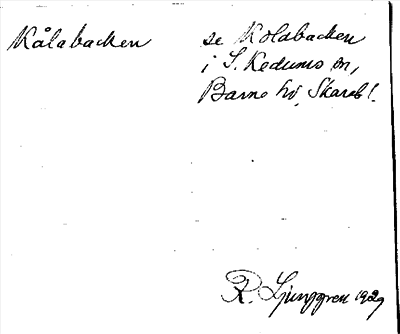 Kålabacken
se Kolabacken
i S. Kedums sn,
Barne hd, Skarab l.
R. Ljunggren 1929